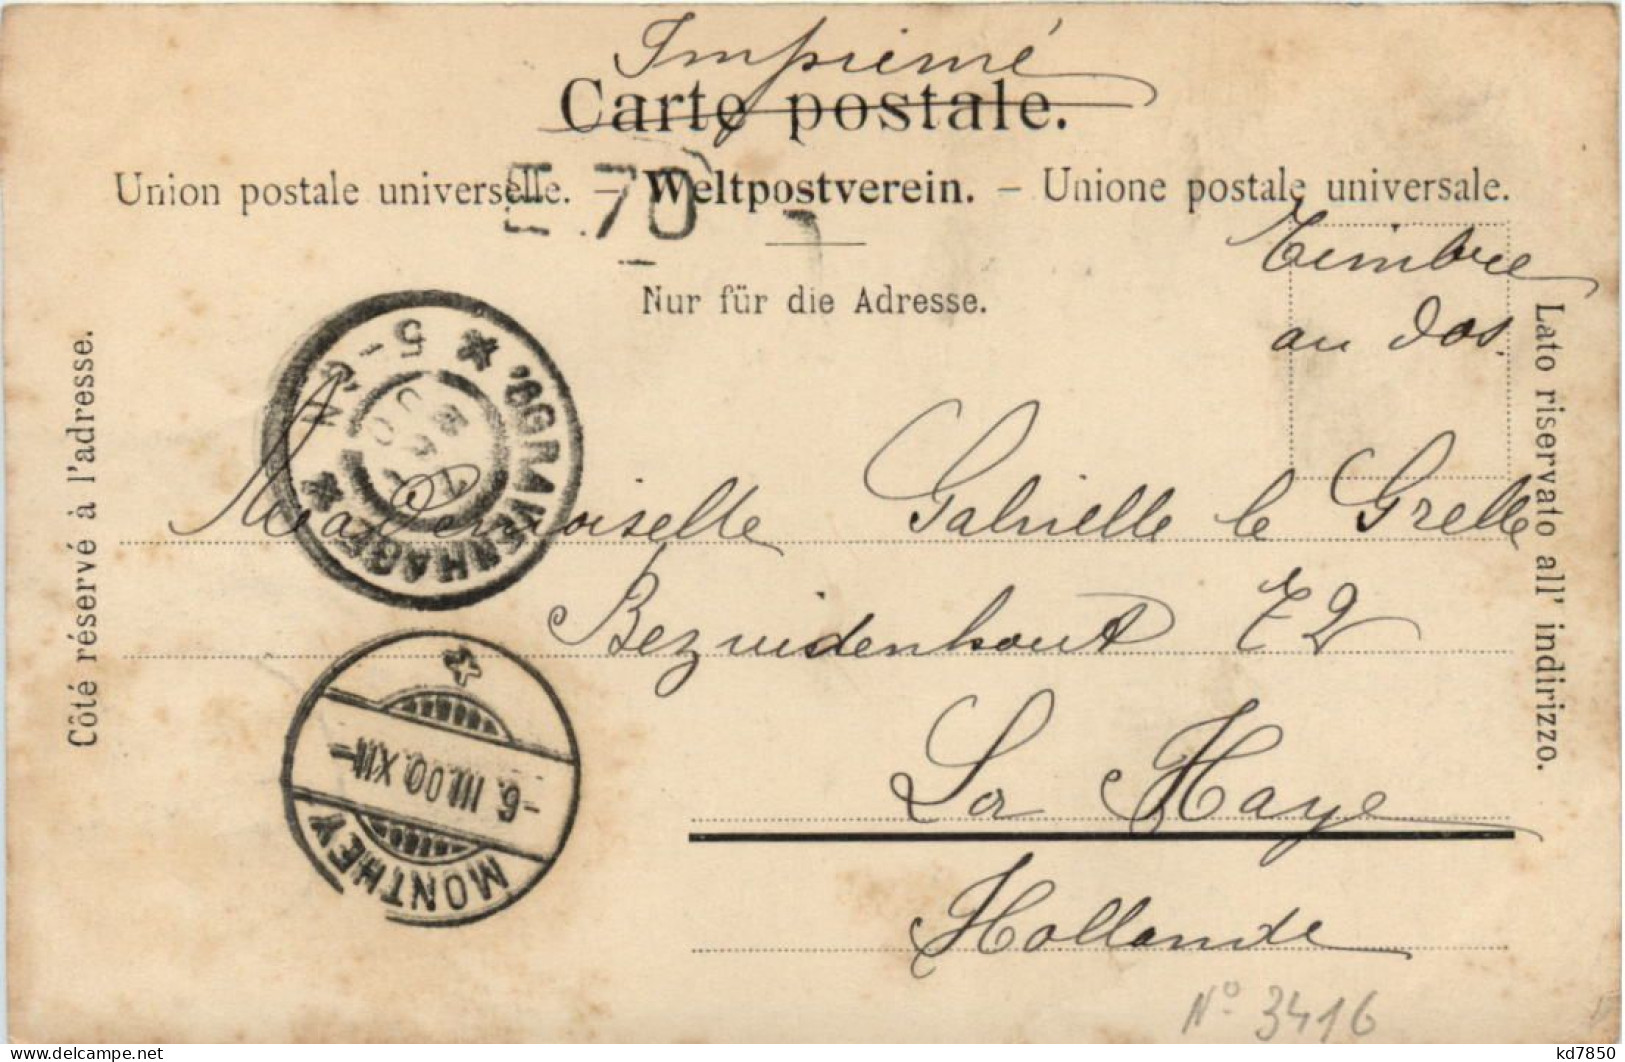 Imprimé
Carte postale.
Union postale universelle. – Weltpostverein. – Unione postale universale.
70
Nur für die Adresse.
Timbre
au dos.
Côté réservé à l'adresse.
Lato riservato all' indirizzo.
'SGRAVENHAGE
5-
Mademoiselle Gabrielle le Grelle
Bezuidenhout 72
La Haye
Hollande
MONTHEY
-6.III.00.XII-
N° 3416
kd7850